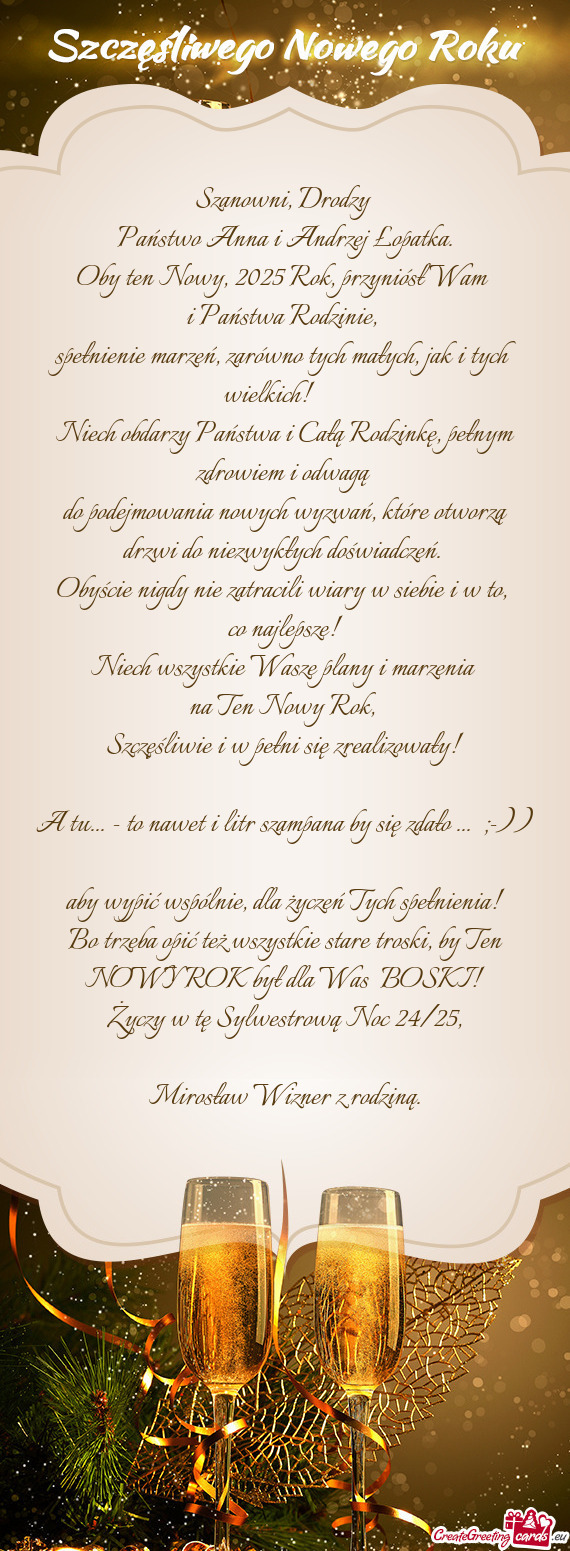 Szczęśliwego Nowego Roku
Szanowni, Drodzy
Państwo Anna i Andrzej Łopatka.
Oby ten Nowy, 2025 Rok, przyniósł Wam
i Państwa Rodzinie,
spełnienie marzeń, zarówno tych małych, jak i tych
wielkich!
Niech obdarzy Państwa i Całą Rodzinkę, pełnym
zdrowiem i odwagą
do podejmowania nowych wyzwań, które otworzą
drzwi do niezwykłych doświadczeń.
Obyście nigdy nie zatracili wiary w siebie i w to,
co najlepsze!
Niech wszystkie Wasze plany i marzenia
na Ten Nowy Rok,
Szczęśliwie i w pełni się zrealizowały!
A tu... - to nawet i litr szampana by się zdało ... ;-))
aby wypić wspólnie, dla życzeń Tych spełnienia!
Bo trzeba opić też wszystkie stare troski, by Ten
NOWY ROK był dla Was BOSKI!
Życzy w tę Sylwestrową Noc 24/25,
Mirosław Wizner z rodziną.
CreateGreetingcards.eu